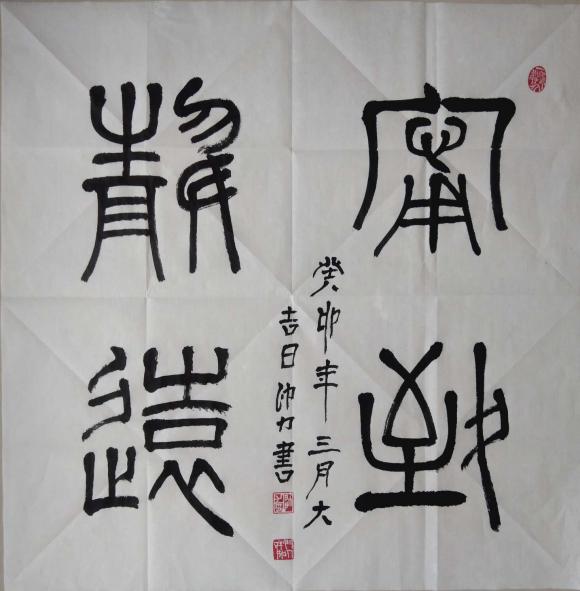 甯靜
致遠
癸卯年三月大
吉日力書